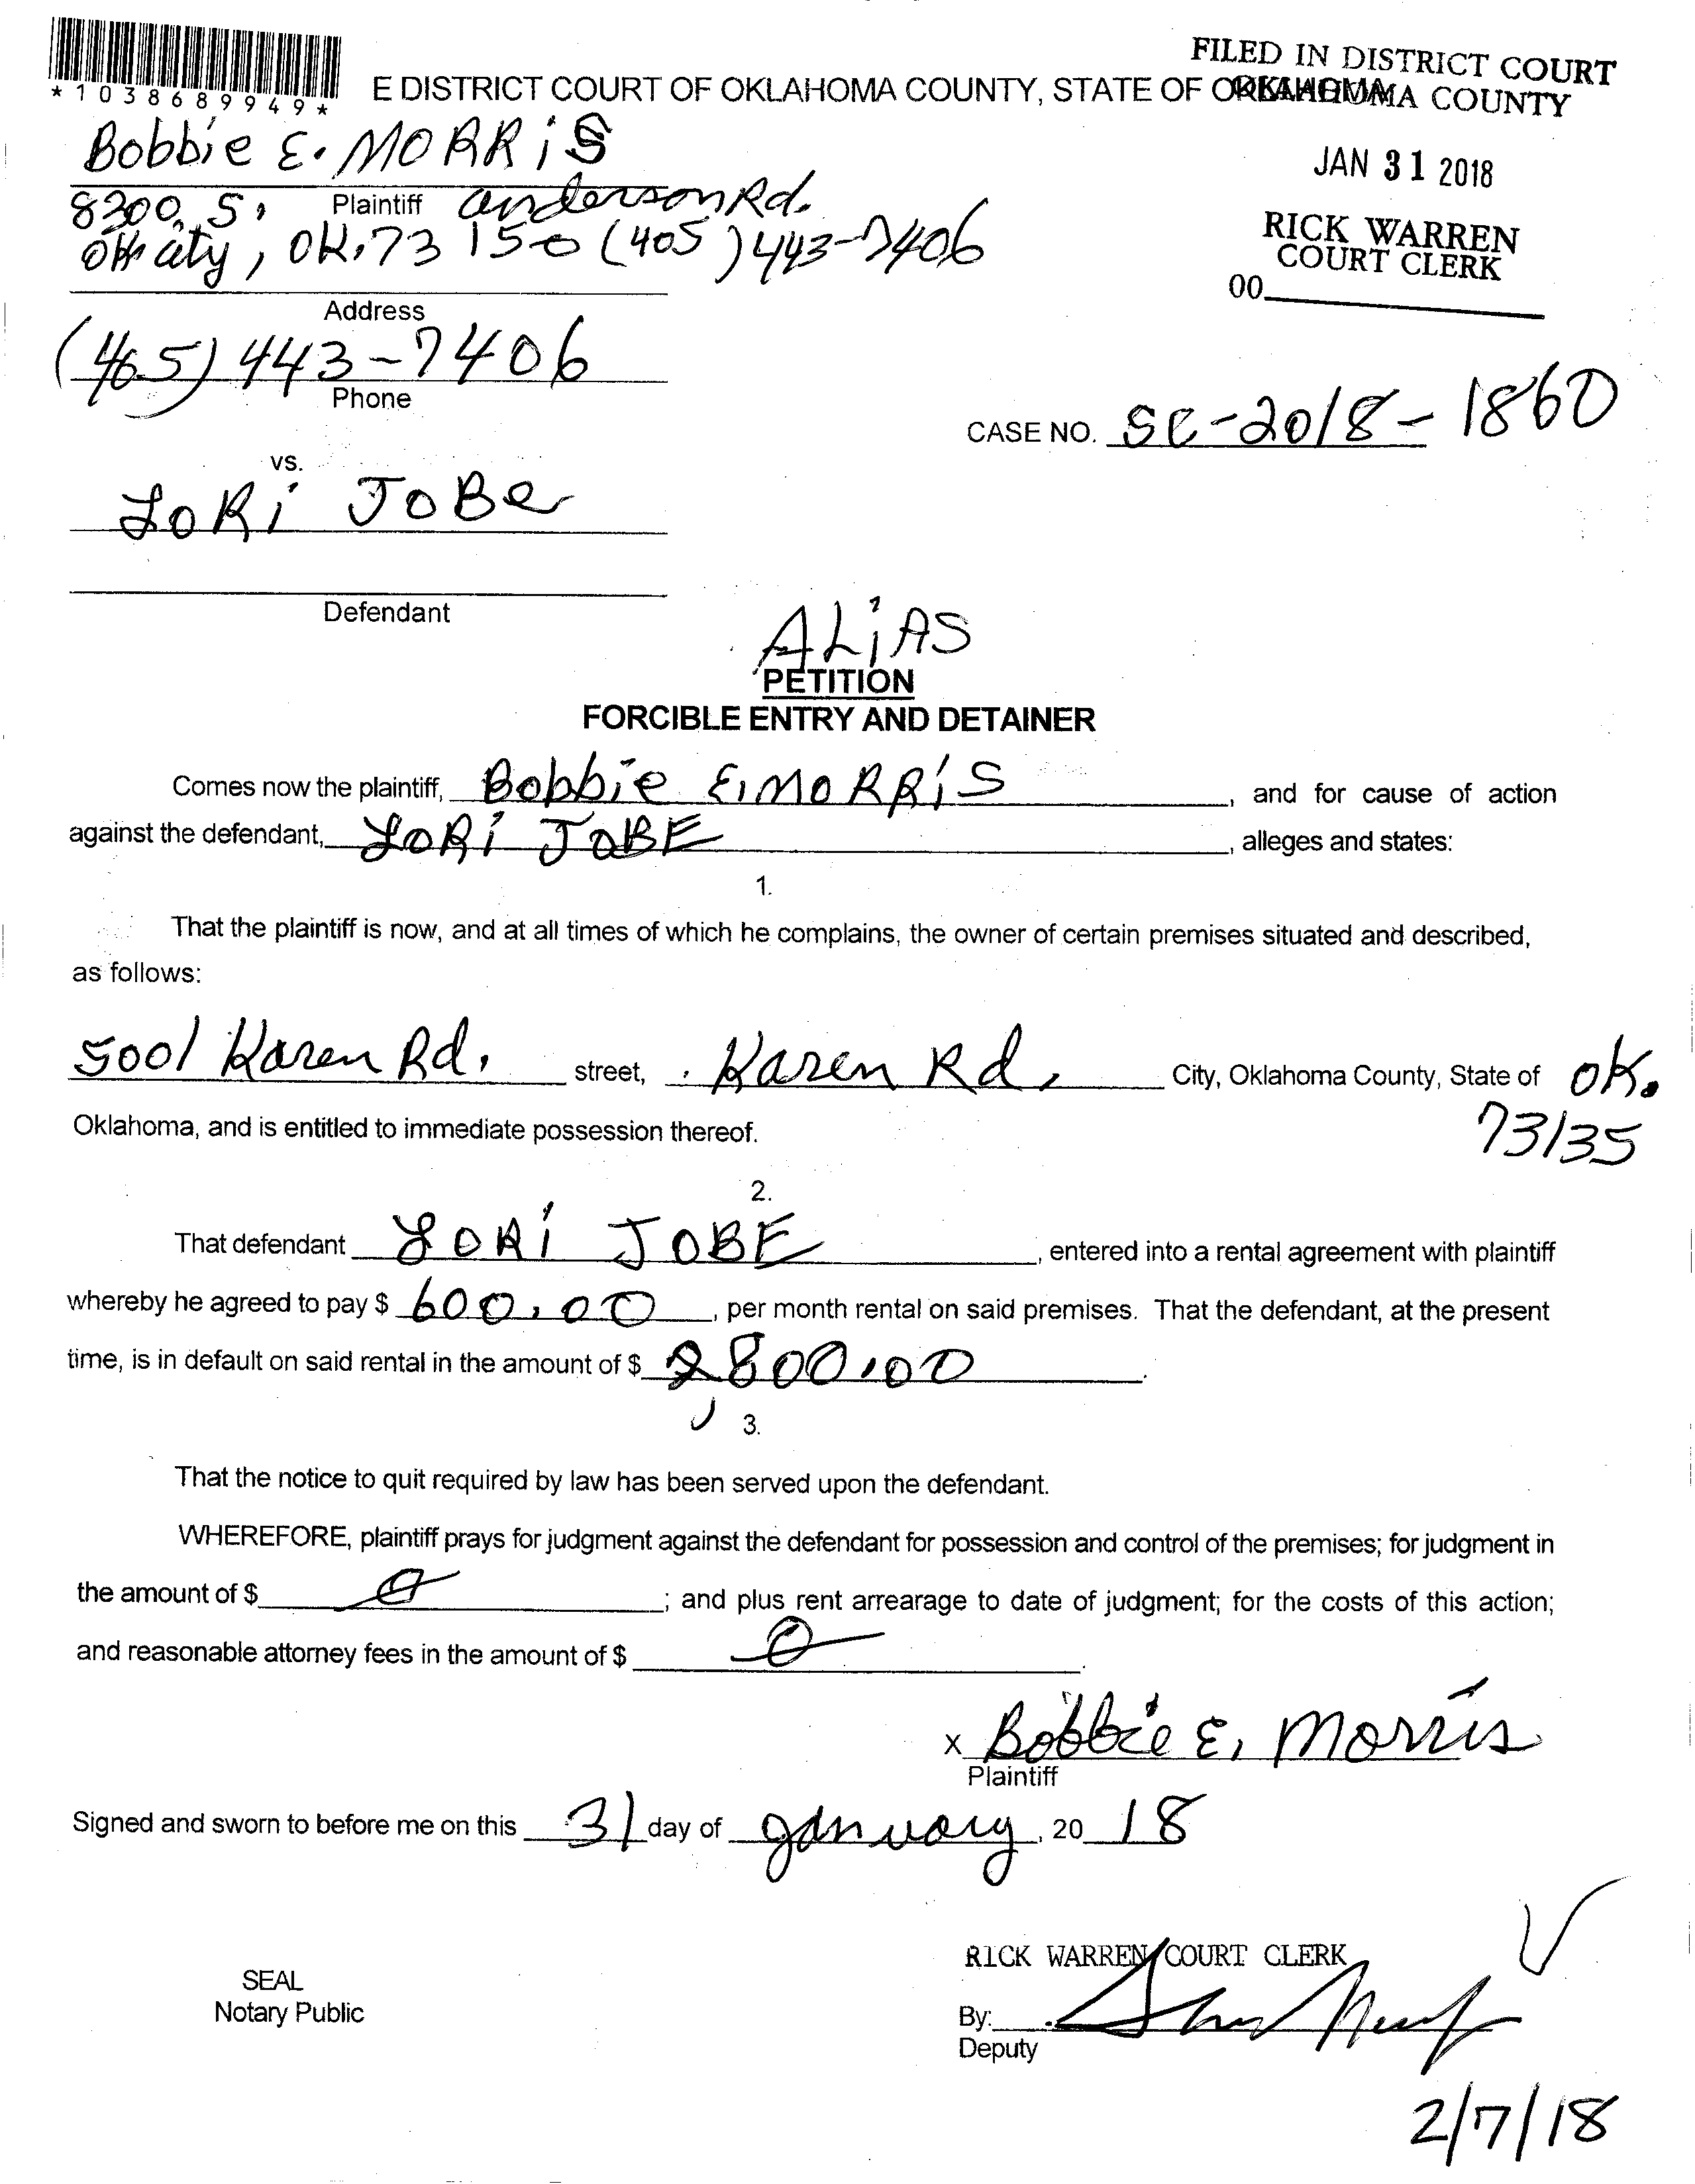 FILED IN DISTRICT COURT
OKLAHOMA COUNTY
*1038689949*
E DISTRICT COURT OF OKLAHOMA COUNTY, STATE OF OKLAHOMA
JAN 31 2018
RICK WARREN
COURT CLERK
00
Bobbie E. MORRiS
Plaintiff
8300 S. anderson Rd.
Ok city, OK. 73150 (405) 443-7406
Address
(405) 443-7406
Phone
CASE NO. SC-2018-1860
vs.
LORi JOBe
Defendant
ALiAS
PETITION
FORCIBLE ENTRY AND DETAINER
Comes now the plaintiff, Bobbie E. MORRiS, and for cause of action
against the defendant, LORi JOBE, alleges and states:
1.
That the plaintiff is now, and at all times of which he complains, the owner of certain premises situated and described,
as follows:
5001 Karen Rd. street, Karen Rd. City, Oklahoma County, State of OK.
73135
Oklahoma, and is entitled to immediate possession thereof.
2.
That defendant LORi JOBE, entered into a rental agreement with plaintiff
whereby he agreed to pay $ 600.00, per month rental on said premises. That the defendant, at the present
time, is in default on said rental in the amount of $ 2,800.00.
3.
That the notice to quit required by law has been served upon the defendant.
WHEREFORE, plaintiff prays for judgment against the defendant for possession and control of the premises; for judgment in
the amount of $ 0; and plus rent arrearage to date of judgment; for the costs of this action;
and reasonable attorney fees in the amount of $ 0.
x Bobbie E. Morris
Plaintiff
Signed and sworn to before me on this 31 day of January, 20 18
RICK WARREN COURT CLERK
SEAL
Notary Public
By:
Deputy
2/7/18